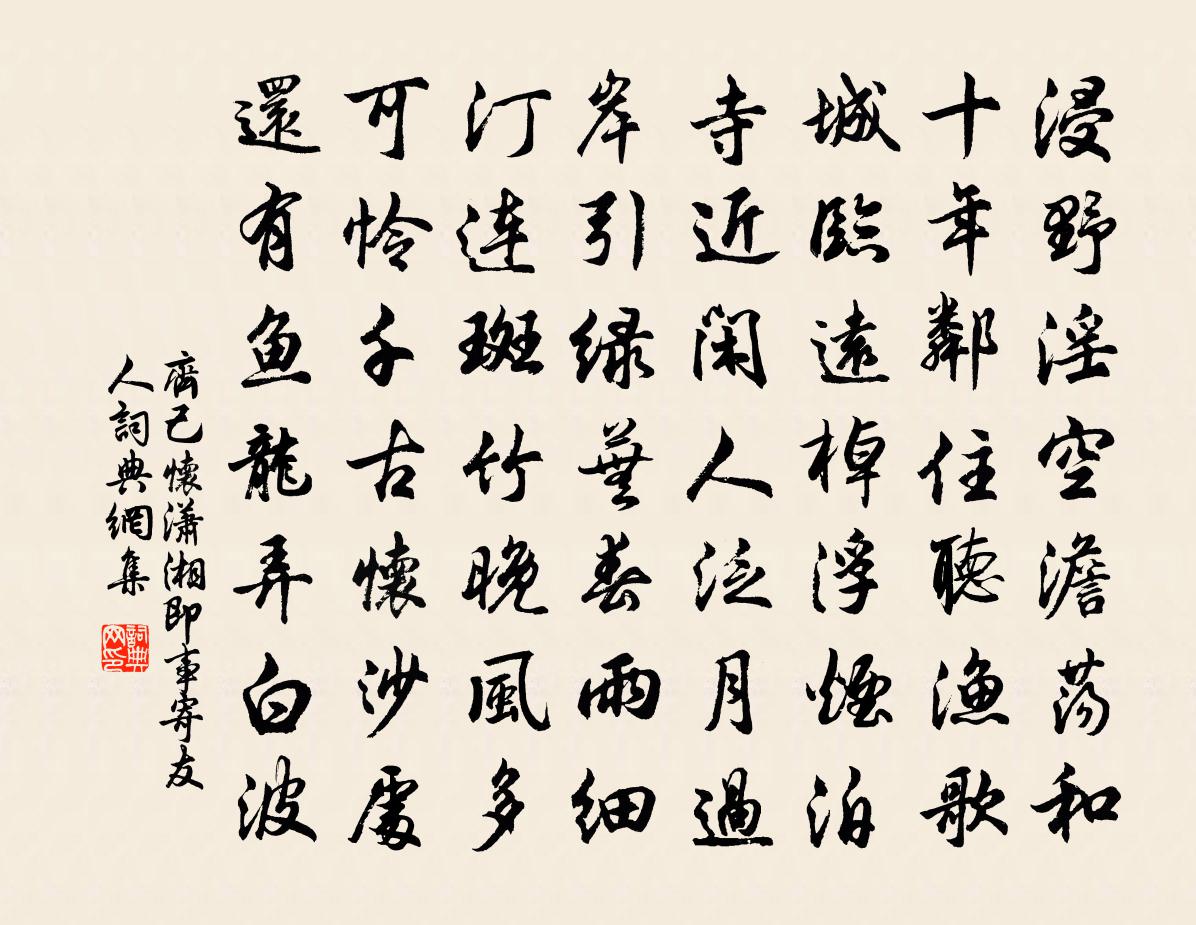 浸野淫空澹荡和
十年鄰住聽漁歌
城臨遠棹浮煙泊
寺近閑人泛月過
岸引绿蕪春雨細
汀連斑竹晚風多
可怜千古懷沙處
還有魚龍弄白波
齊己懷瀟湘即事寄友
人詞典網集
詞典网印